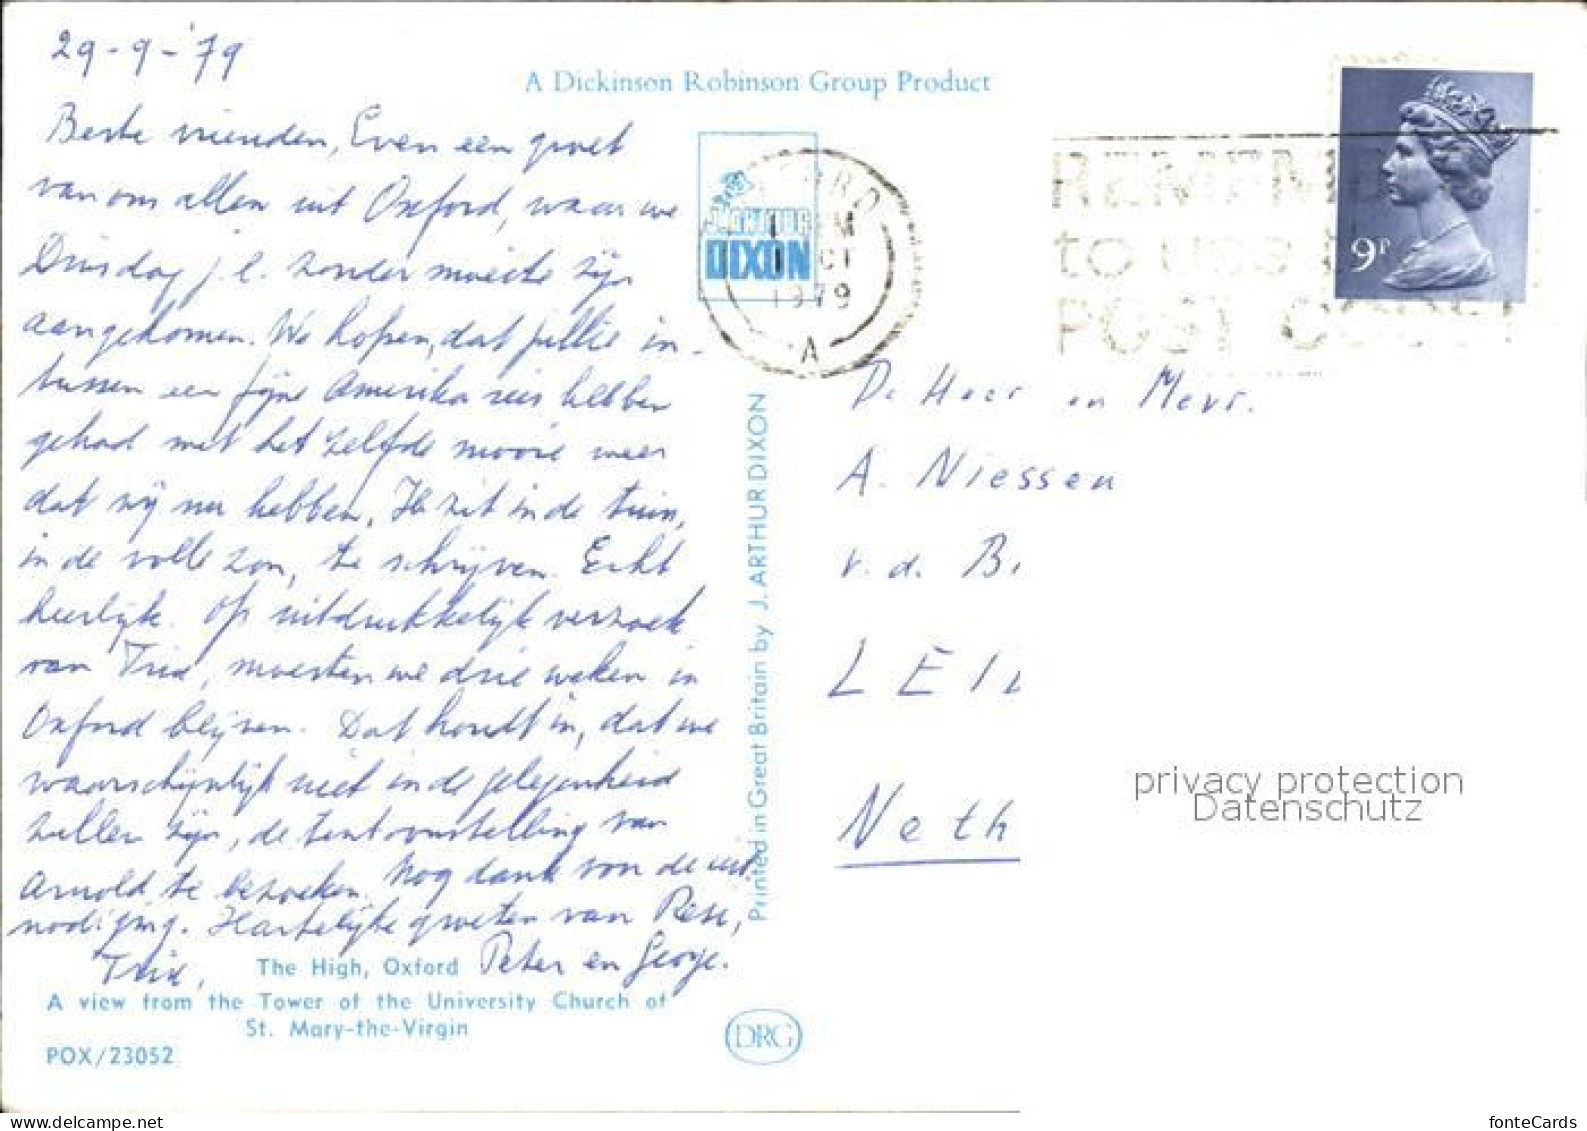 29-9-'79
A Dickinson Robinson Group Product
Beste vrienden, Even een groet
van ons allen uit Oxford, waar we
Dinsdag j.l. zonder moeite zijn
aangekomen. We hopen, dat jullie in-
tussen een fijne Amerika reis hebben
gehad met het zelfde mooie weer
dat wij nu hebben. Ik zit in de tuin,
in de volle zon, te schrijven. Echt
heerlijk. Op uitdrukkelijk verzoek
van Trix, moesten we drie weken in
Oxford blijven. Dat houdt in, dat we
waarschijnlijk niet in de gelegenheid
zullen zijn, de tentoonstelling van
Arnold te bezoeken. Nog dank voor de uit
nodiging. Hartelijke groeten van
Trix, Peter en George.
The High, Oxford
A view from the Tower of the University Church of
St. Mary-the-Virgin
POX/23052
J. ARTHUR
DIXON
OCT
1979
A
REMEMBER
to use the
POST CODE
9P
Printed in Great Britain by J. ARTHUR DIXON
DRG
De Heer en Mevr.
A. Niessen
v. d. B
LEI
Neth
privacy protection
Datenschutz
fonteCards